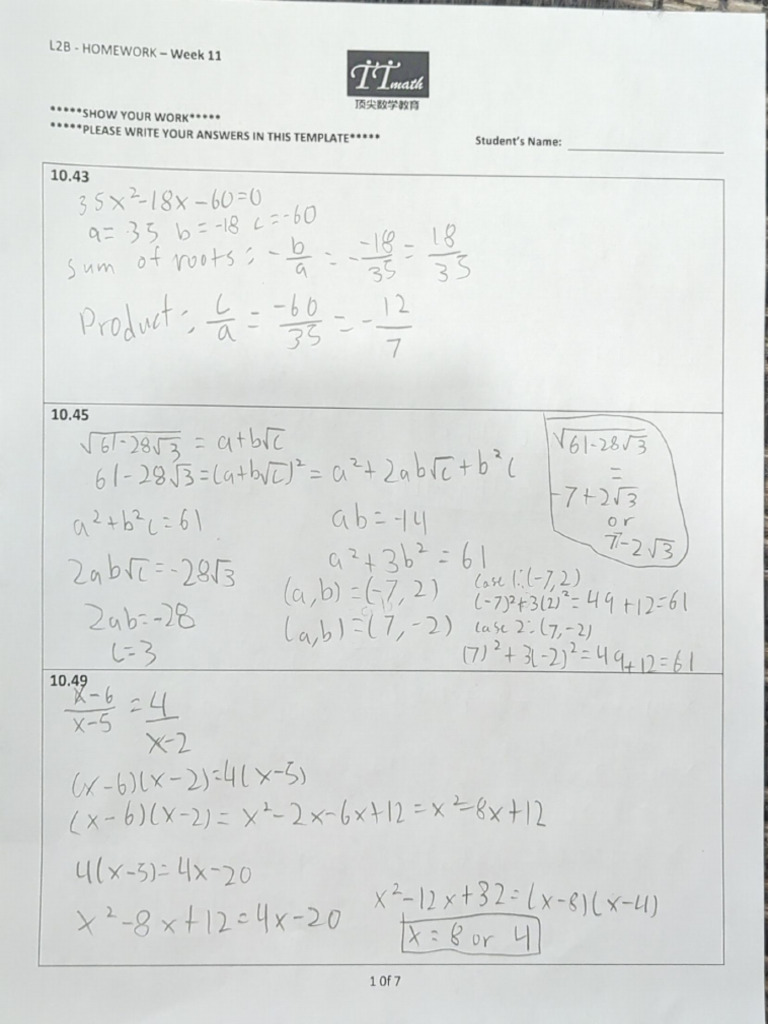 L2B - HOMEWORK – Week 11
TTmath
顶尖数学教育
*****SHOW YOUR WORK*****
*****PLEASE WRITE YOUR ANSWERS IN THIS TEMPLATE*****
Student's Name: ____________________
10.43
35x²-18x-60=0
a=35 b=-18 c=-60
sum of roots: -b/a = - -18/35 = 18/35
Product: c/a = -60/35 = -12/7
10.45
√(61-28√3) = a+b√c
61-28√3=(a+b√c)²=a²+2ab√c+b²c
a²+b²c=61
2ab√c=-28√3
2ab=-28
c=3
ab=-14
a²+3b²=61
(a,b)=(-7,2)
(a,b)=(7,-2)
case 1:(-7,2)
(-7)²+3(2)²=49+12=61
case 2:(7,-2)
(7)²+3(-2)²=49+12=61
√(61-28√3)
=
-7+2√3
or
7-2√3
10.49
x-6/x-5 = 4/x-2
(x-6)(x-2)=4(x-5)
(x-6)(x-2)=x²-2x-6x+12=x²-8x+12
4(x-5)=4x-20
x²-8x+12=4x-20
x²-12x+32=(x-8)(x-4)
x=8 or 4
1 Of 7